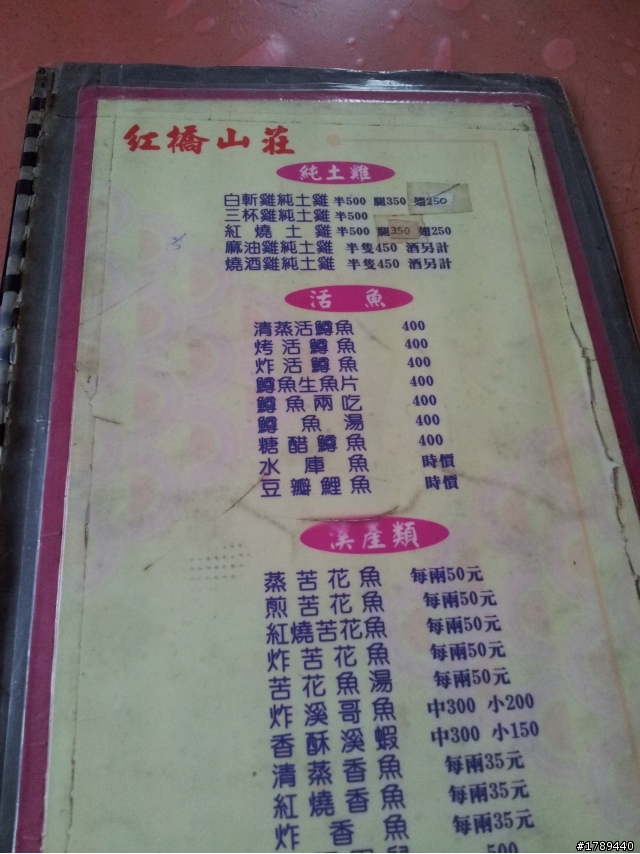 紅橋山莊
純土雞
白斬雞純土雞 半500 腿350 翅250
三杯雞純土雞 半500
紅燒土雞 半500 腿350 翅250
麻油雞純土雞 半隻450 酒另計
燒酒雞純土雞 半隻450 酒另計
活魚
清蒸活鱒魚 400
烤活鱒魚 400
炸活鱒魚 400
鱒魚生魚片 400
鱒魚兩吃 400
鱒魚湯 400
糖醋鱒魚 400
水庫魚 時價
豆瓣鯉魚 時價
溪產類
蒸苦花魚 每兩50元
煎苦花魚 每兩50元
紅燒苦花魚 每兩50元
炸苦花魚 每兩50元
苦花魚湯 每兩50元
炸溪哥魚 中300 小200
香酥溪蝦 中300 小150
清蒸香魚 每兩35元
紅燒香魚 每兩35元
炸香魚 每兩35元
500
#1789440